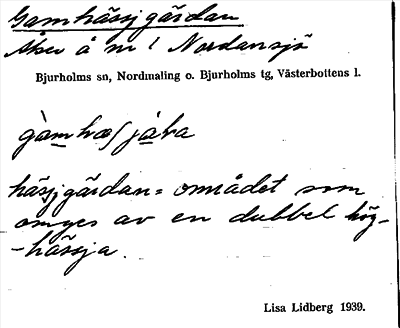 Gamhässjgärdan
Åker å m i Nordansjö
Bjurholms sn, Nordmaling o. Bjurholms tg, Västerbottens l.
hässjgärdan = området som
omges av en dubbel hög-
-hässja.
Lisa Lidberg 1939.